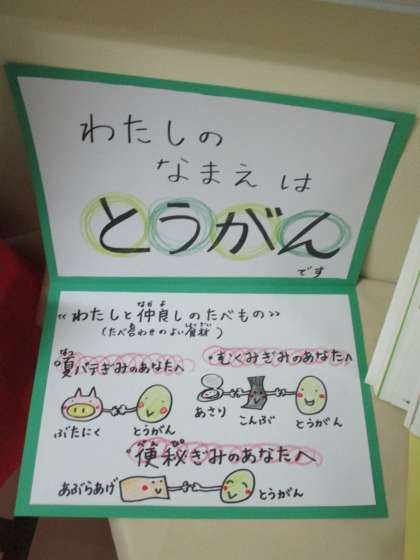 わたしの
なまえは
とうがん
です
〝わたしと仲良しのたべもの〟
なかよ
(たべ合わせのよい食材)
・夏バテぎみのあなたへ
なつ
・むくみぎみのあなたへ
ぶたにく とうがん
あさり こんぶ とうがん
・便秘ぎみのあなたへ
べんぴ
あぶらあげ とうがん